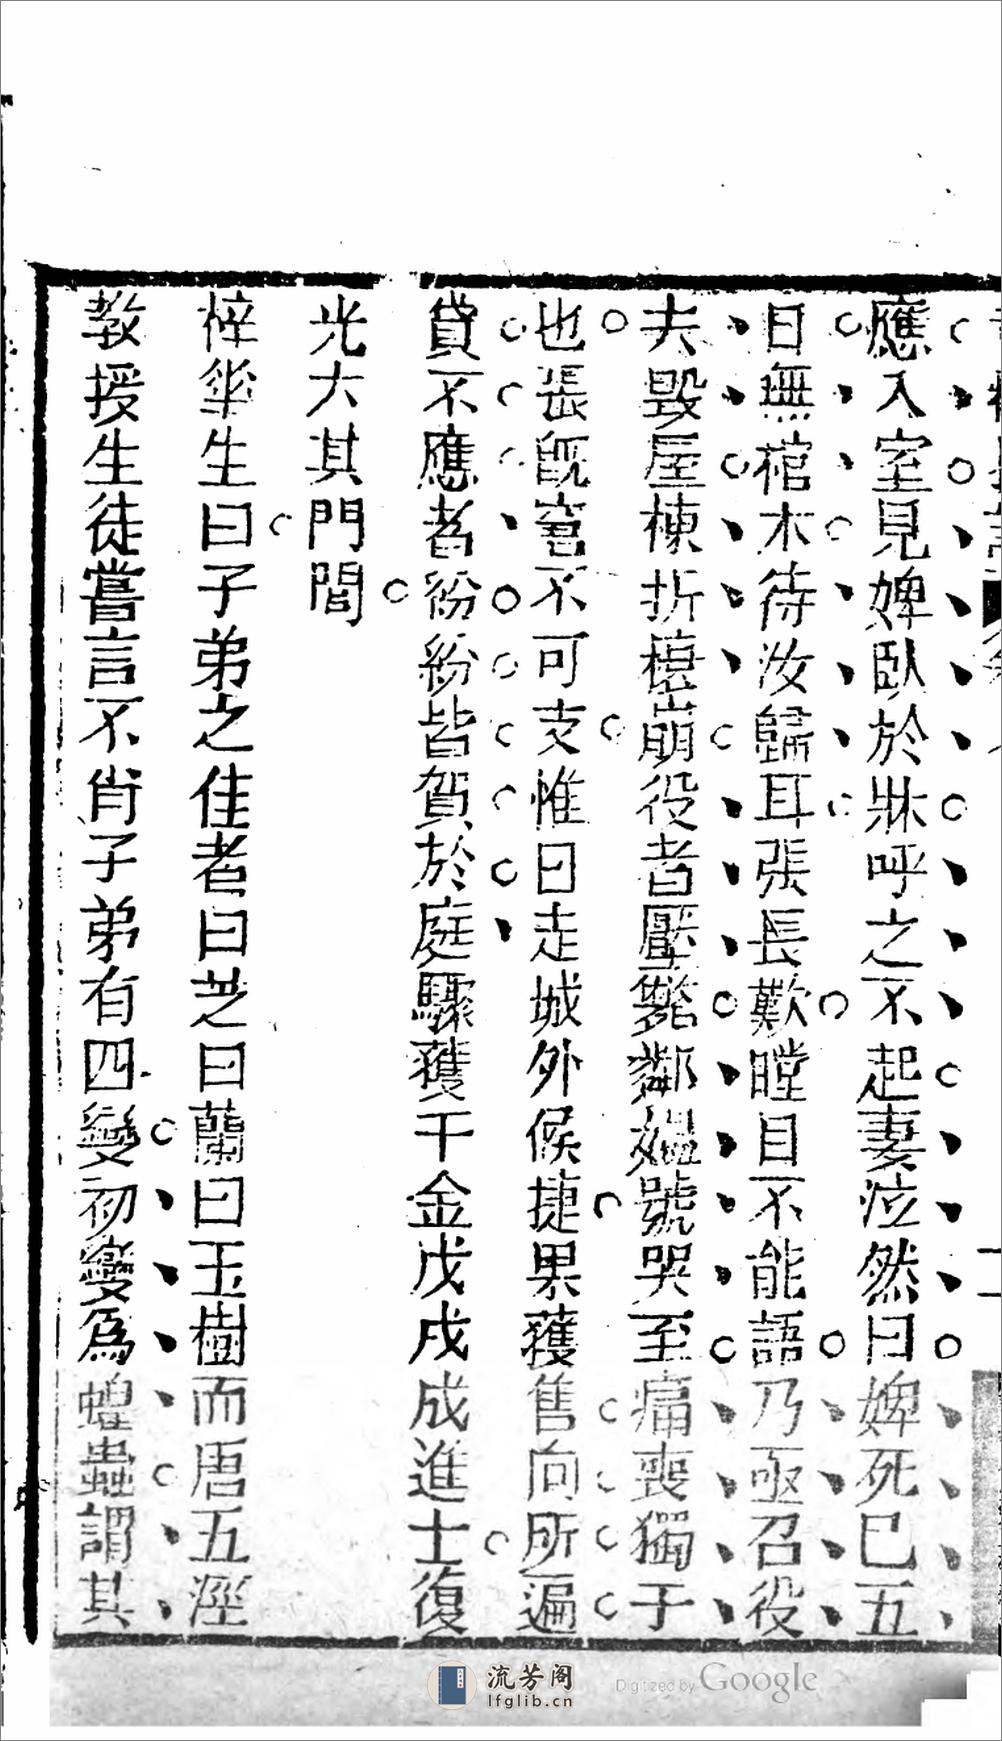 應入室見婢臥於牀呼之不起妻泣然曰婢死已五
日無棺木待汝歸耳張長歎瞠目不能語乃亟召役
夫毀屋棟折榱崩役者壓斃鄰媼號哭至痛喪獨子
也張旣窘不可支惟日走城外候捷果獲售向所遍
貸不應者紛紛皆賀於庭驟獲千金戊戌成進士復
光大其門閭
梓華生曰子弟之佳者曰芝曰蘭曰玉樹而唐五涇
教授生徒嘗言不肖子弟有四變初變爲蝗蟲謂其
流芳阁
lfglib.cn
Digitized by Google